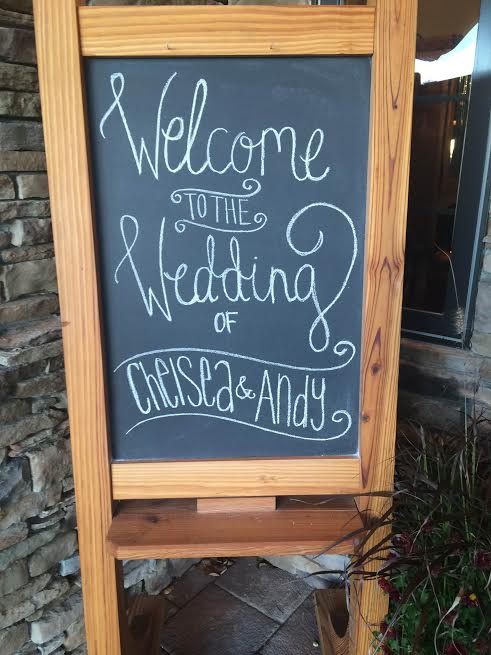 Welcome
TO THE
Wedding
OF
Chelsea & Andy